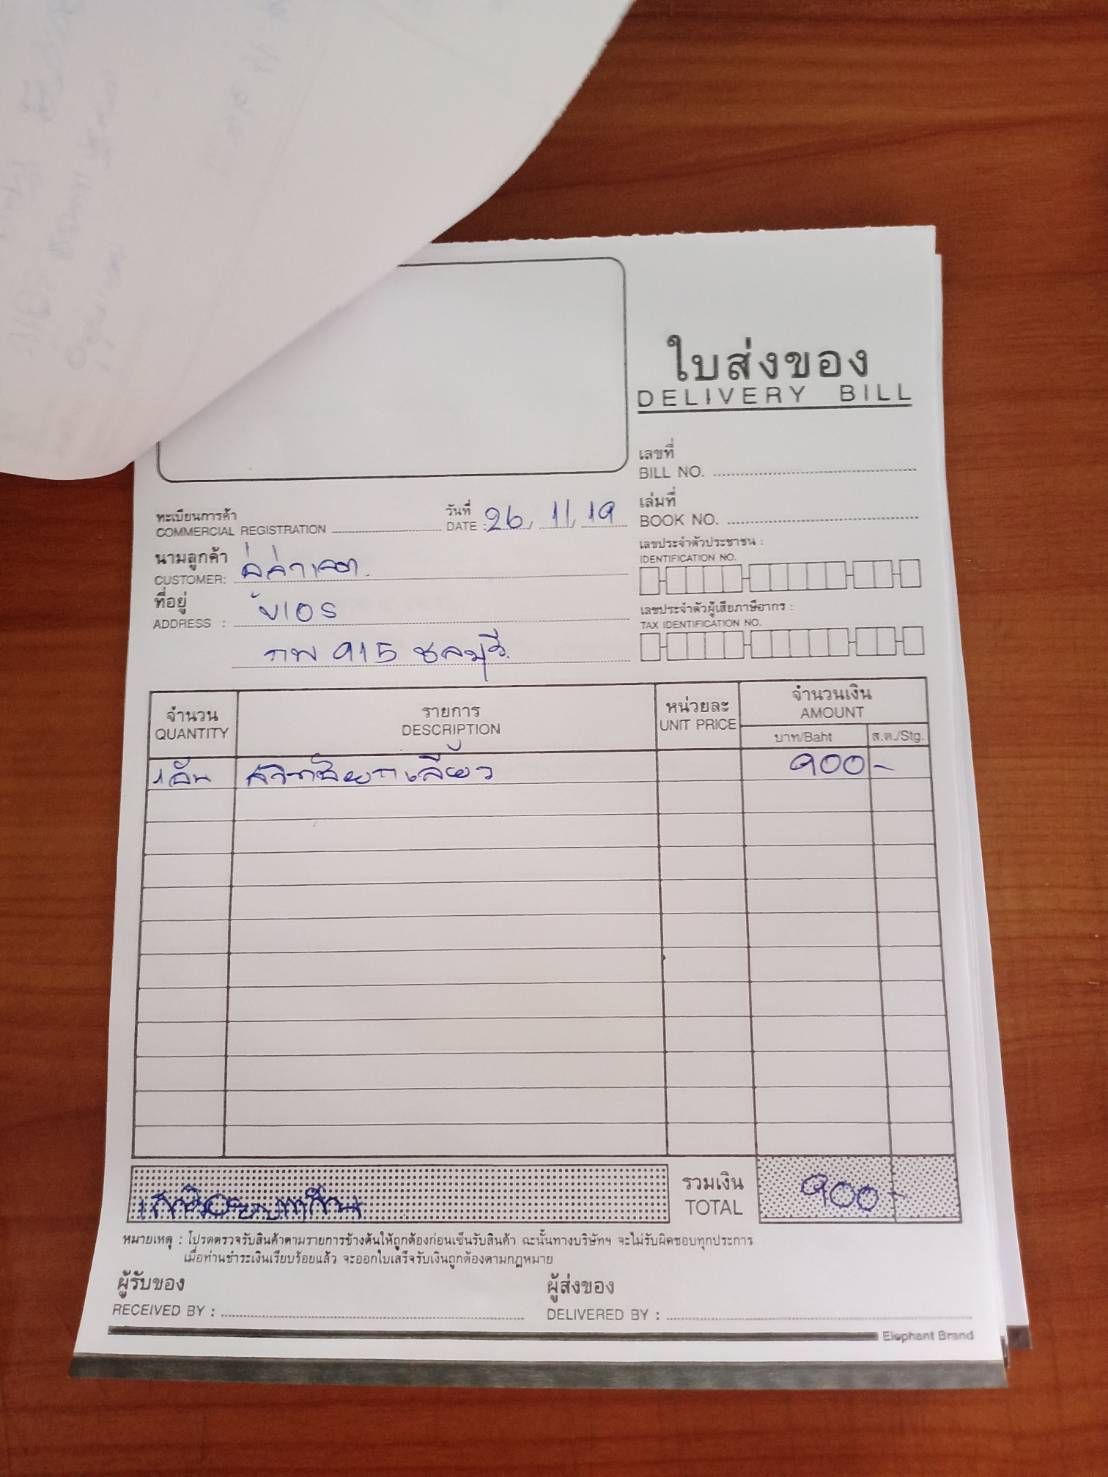 ใบส่งของ
DELIVERY BILL
เลขที่
BILL NO.
ทะเบียนการค้า
COMMERCIAL REGISTRATION
วันที่
DATE : 26, 11, 19
เล่มที่
BOOK NO.
นามลูกค้า
CUSTOMER:
เลขประจำตัวประชาชน :
IDENTIFICATION NO.
ที่อยู่
ADDRESS : VIOS
กพ 915 ชลบุรี
เลขประจำตัวผู้เสียภาษีอากร :
TAX IDENTIFICATION NO.
จำนวน
QUANTITY
รายการ
DESCRIPTION
หน่วยละ
UNIT PRICE
จำนวนเงิน
AMOUNT
บาท/Baht
ส.ต./Stg.
1 อัน สวิทซ์ยกเลี้ยว 900 -
รวมเงิน
TOTAL
900 -
หมายเหตุ : โปรดตรวจรับสินค้าตามรายการข้างต้นให้ถูกต้องก่อนเซ็นรับสินค้า ฉะนั้นทางบริษัทฯ จะไม่รับผิดชอบทุกประการ
เมื่อท่านชำระเงินเรียบร้อยแล้ว จะออกใบเสร็จรับเงินถูกต้องตามกฎหมาย
ผู้รับของ
RECEIVED BY :
ผู้ส่งของ
DELIVERED BY :
Elephant Brand